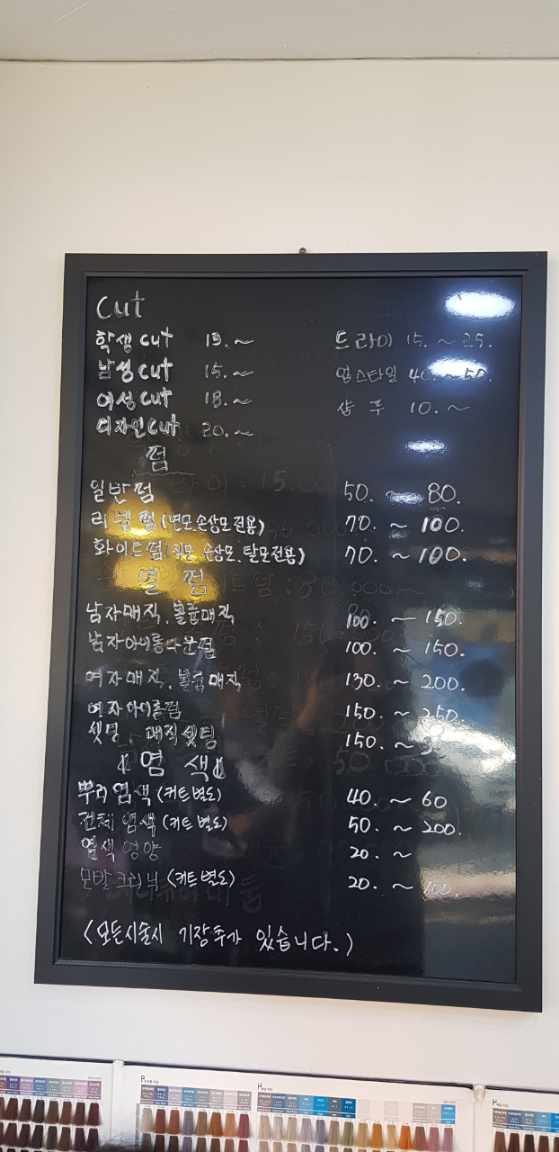 Cut
학생 cut 13.~ 드라이 15.~25.
남성 cut 15.~ 업스타일 40.~50.
여성 cut 18.~ 샴푸 10.~
디자인 cut 20.~
펌
일반펌 50.~80.
펌 (연모손상모전용) 70.~100.
화이드펌 손상모, 탈모전용) 70.~100.
열 펌
남자매직. 볼륨매직 100.~150.
남자아이롱다운펌 100.~150.
여자매직. 볼륨매직 130.~200.
여자아이롱펌 150.~250.
셋팅. 매직셋팅 150.~
염 색
뿌리염색 (커트별도) 40.~60
전체염색 (커트별도) 50.~200.
염색영양 20.~
모발크리닉 (커트별도) 20.~
(모든시술시 기장추가 있습니다.)